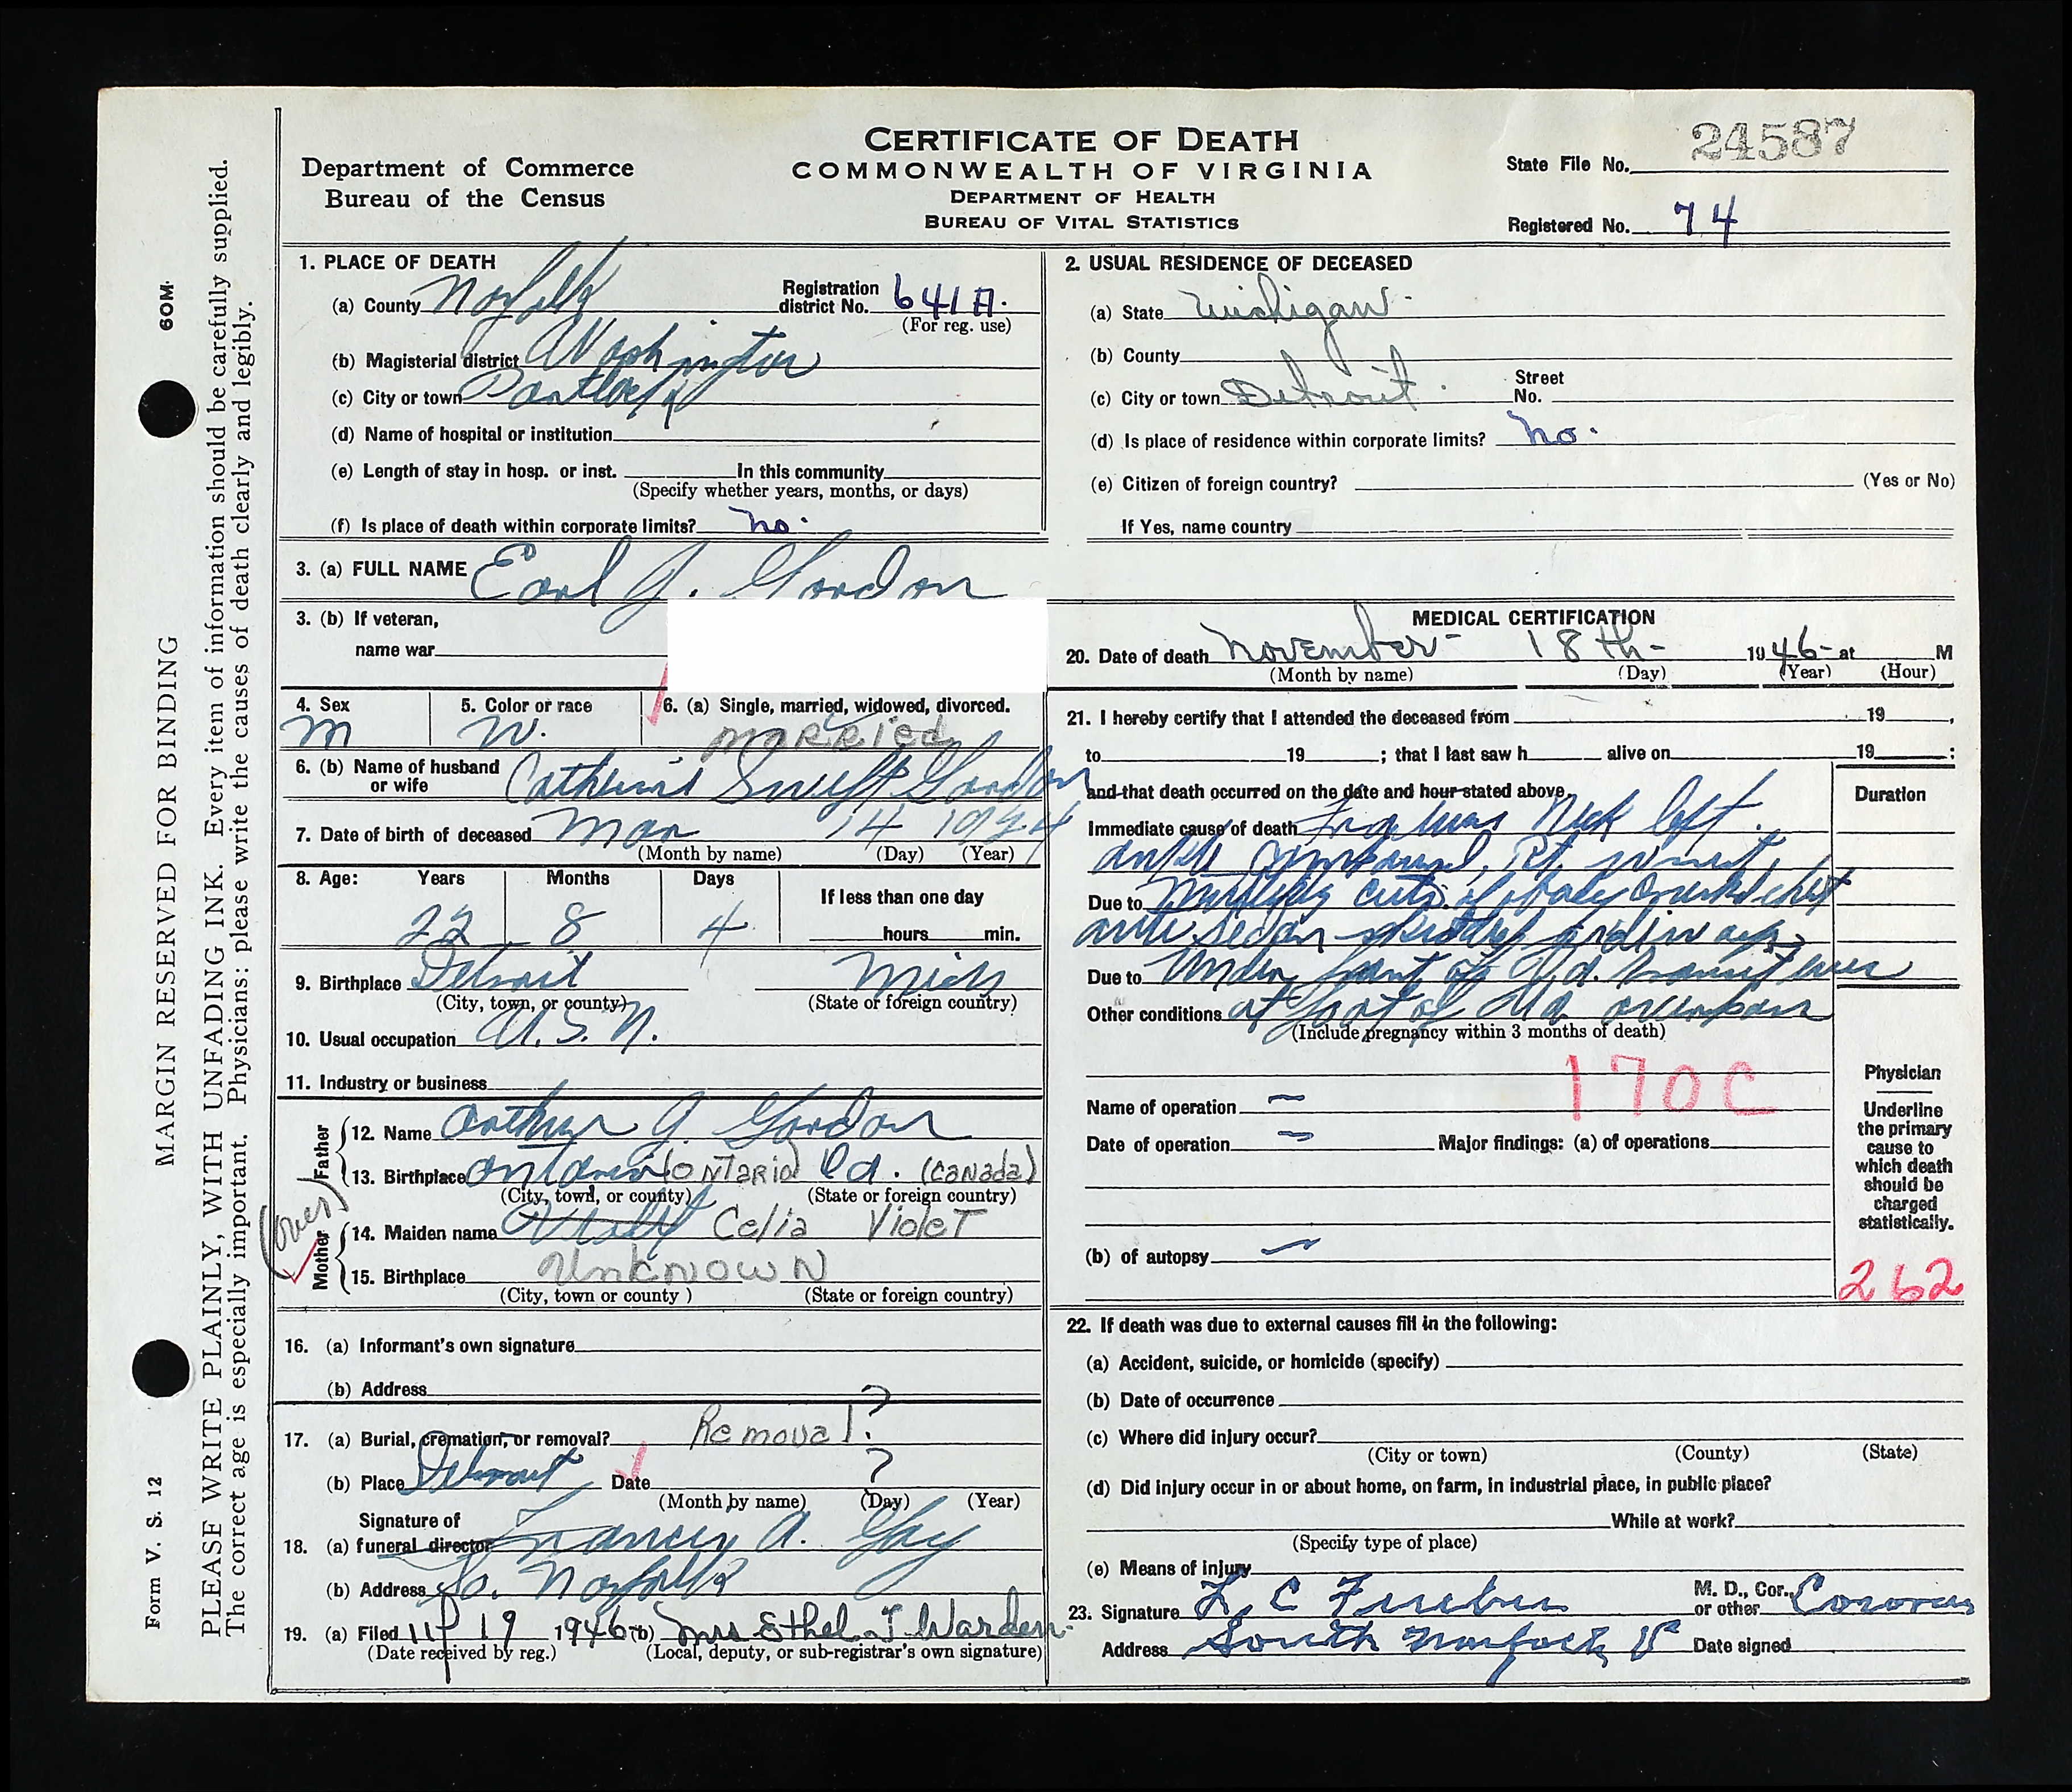 CERTIFICATE OF DEATH
COMMONWEALTH OF VIRGINIA
DEPARTMENT OF HEALTH
BUREAU OF VITAL STATISTICS
Department of Commerce
Bureau of the Census
State File No. 24587
Registered No. 74
MARGIN RESERVED FOR BINDING
60M.
Form V. S. 12
PLEASE WRITE PLAINLY, WITH UNFADING INK. Every item of information should be carefully supplied.
The correct age is especially important. Physicians: please write the causes of death clearly and legibly.
1. PLACE OF DEATH
(a) County Norfolk Registration district No. 641A.
(For reg. use)
(b) Magisterial district Washington
(c) City or town
(d) Name of hospital or institution
(e) Length of stay in hosp. or inst. In this community
(Specify whether years, months, or days)
(f) Is place of death within corporate limits? no.
2. USUAL RESIDENCE OF DECEASED
(a) State Michigan
(b) County
(c) City or town Detroit Street No.
(d) Is place of residence within corporate limits? no.
(e) Citizen of foreign country? (Yes or No)
If Yes, name country
3. (a) FULL NAME Earl J. Gordon
3. (b) If veteran,
name war
4. Sex 5. Color or race 6. (a) Single, married, widowed, divorced.
M W. Married
6. (b) Name of husband or wife Catherine Swift Gordon
7. Date of birth of deceased Mar 14 1924
(Month by name) (Day) (Year)
8. Age: Years Months Days If less than one day
22 8 4 hours min.
9. Birthplace Detroit Mich
(City, town, or county) (State or foreign country)
10. Usual occupation U.S.N.
11. Industry or business
Father
12. Name Arthur J. Gordon
13. Birthplace (Ontario) Cd. (Canada)
(City, town, or county) (State or foreign country)
(over)
Mother
14. Maiden name Celia Violet
15. Birthplace Unknown
(City, town or county) (State or foreign country)
16. (a) Informant's own signature
(b) Address
17. (a) Burial, cremation, or removal? Removal ?
(b) Place Detroit Date ?
(Month by name) (Day) (Year)
18. (a) Signature of funeral director Francis A. Gay
(b) Address So. Norfolk
19. (a) Filed 11/19 1946 (b) Mrs Ethel T Warden
(Date received by reg.) (Local, deputy, or sub-registrar's own signature)
MEDICAL CERTIFICATION
20. Date of death November 18th 1946 at M
(Month by name) (Day) (Year) (Hour)
21. I hereby certify that I attended the deceased from 19 ,
to 19 ; that I last saw h alive on 19 :
and that death occurred on the date and hour stated above.
Duration
Immediate cause of death Neck left
ankle compound, Rt.
Due to cuts of body crushed chest
auto sedan
Due to Under front of
Other conditions at foot of overpass
(Include pregnancy within 3 months of death)
170C
Name of operation –
Date of operation – Major findings: (a) of operations
(b) of autopsy –
Physician
Underline
the primary
cause to
which death
should be
charged
statistically.
262
22. If death was due to external causes fill in the following:
(a) Accident, suicide, or homicide (specify)
(b) Date of occurrence
(c) Where did injury occur?
(City or town) (County) (State)
(d) Did injury occur in or about home, on farm, in industrial place, in public place?
While at work?
(Specify type of place)
(e) Means of injury
23. Signature L. C. M. D., Cor., or other Coroner
Address South Norfolk Va Date signed